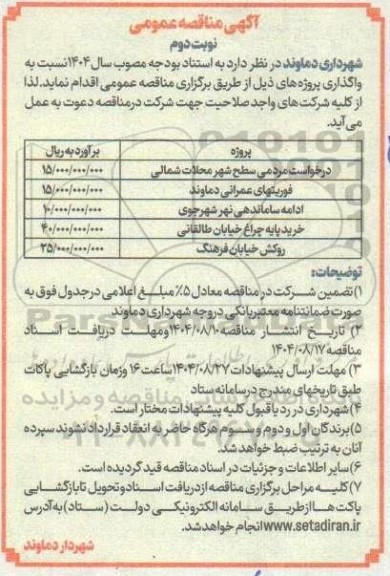 آگهی مناقصه عمومی
نوبت دوم
شهرداری دماوند در نظر دارد به استناد بودجه مصوب سال ۱۴۰۴ نسبت به
واگذاری پروژه‌های ذیل از طریق برگزاری مناقصه عمومی اقدام نماید. لذا
از کلیه شرکت‌های واجد صلاحیت جهت شرکت در مناقصه دعوت به عمل
می‌آید.
پروژه برآورد به ریال
درخواست مردمی سطح شهر محلات شمالی ۱۵/۰۰۰/۰۰۰/۰۰۰
فوریتهای عمرانی دماوند ۱۵/۰۰۰/۰۰۰/۰۰۰
ادامه ساماندهی نهر شهرجوی ۱۰/۰۰۰/۰۰۰/۰۰۰
خرید پایه چراغ خیابان طالقانی ۴۰/۰۰۰/۰۰۰/۰۰۰
روکش خیابان فرهنگ ۲۵/۰۰۰/۰۰۰/۰۰۰
توضیحات:
۱) تضمین شرکت در مناقصه معادل ۵٪ مبلغ اعلامی در جدول فوق به
صورت ضمانتنامه معتبر بانکی در وجه شهرداری دماوند
۲) تاریخ انتشار مناقصه ۱۴۰۴/۰۸/۱۰ و مهلت دریافت اسناد
مناقصه ۱۴۰۴/۰۸/۱۷
۳) مهلت ارسال پیشنهادات ۱۴۰۴/۰۸/۲۷ ساعت ۱۶ و زمان بازگشایی پاکات
طبق تاریخهای مندرج در سامانه ستاد
۴) شهرداری در رد یا قبول کلیه پیشنهادات مختار است.
۵) برندگان اول و دوم و سوم هرگاه حاضر به انعقاد قرارداد نشوند سپرده
آنان به ترتیب ضبط خواهد شد.
۶) سایر اطلاعات و جزئیات در اسناد مناقصه قید گردیده است.
۷) کلیه مراحل برگزاری مناقصه از دریافت اسناد و تحویل تا بازگشایی
پاکت ها از طریق سامانه الکترونیکی دولت (ستاد) به آدرس
www.setadiran.ir انجام خواهد شد.
شهردار دماوند